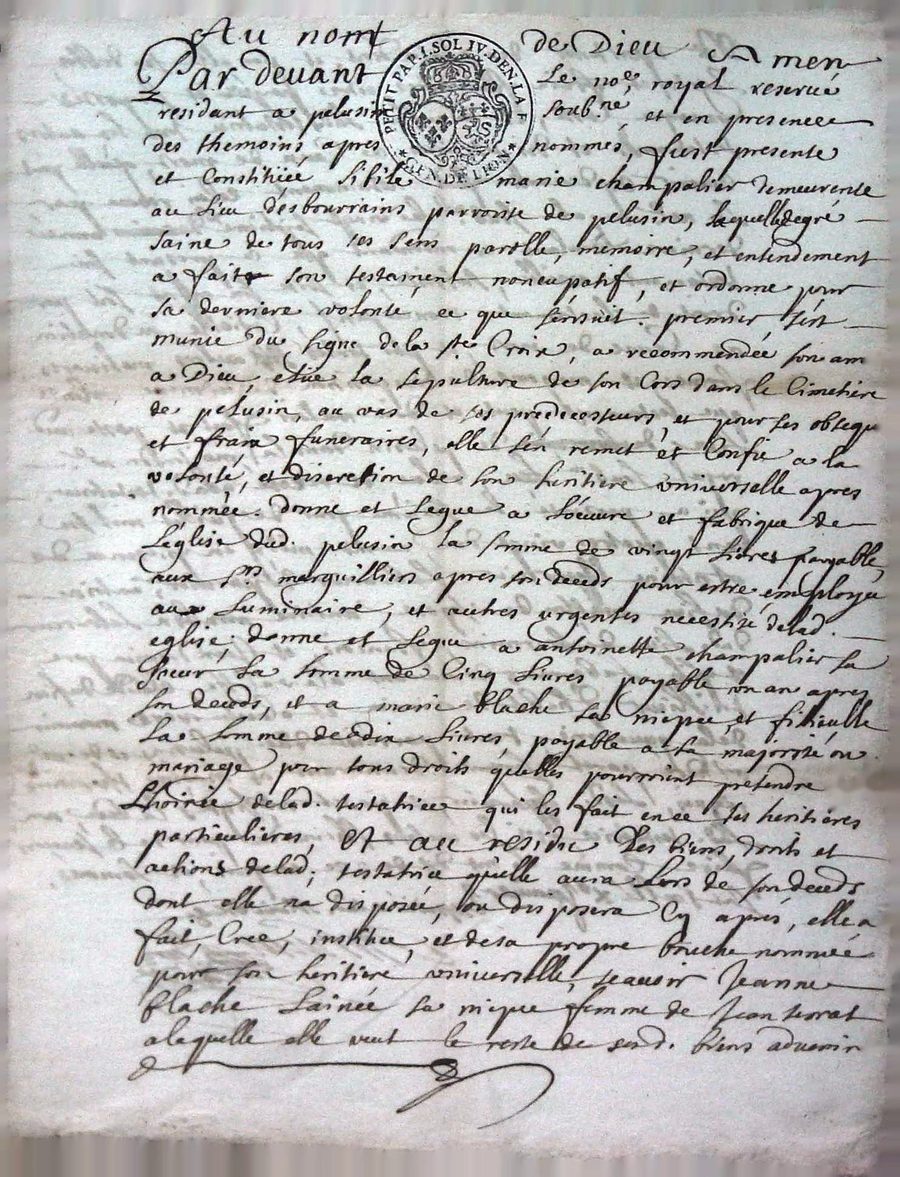 Au nom de Dieu Amen
PETIT PAP. I. SOL IV. DEN. LA F
GEN. DE LION
Par devant Le no.re royal reservé
residant a pelusin soub.né et en presence
des themoins apres nommés, fust presente
et Constituée Sibile marie champalier demeurente
au lieu desbourrains parroisse de pelusin, laquelle degré
saine de tous ses sens parolle, memoire, et entendement
a fait son testament noncupatif, et ordonne pour
sa derniere volonté ce que sensuit. premier sest
munie du signe de la s.te Croix, a recommendée son am
a Dieu, elue la sepulture de son Cors dans le Cimetiere
de pelusin, au vas de ses predecesseurs, et pour ses obseque
et fraix funeraires, elle sen remet et Confie a la
volonté, et discretion de son heritiere universelle apres
nommée. donne et legue a loeuvre et fabrique de
Léglise dud. pelusin la somme de vingt livres payable,
aux s.rs marguilliers apres son deceds pour estre employée
au Luminaire, et autres urgentes necestité delad.
eglise; donne et legue a antoinette champalier sa
soeur la somme de Cinq livres payable un an apres
son deceds, et a marie blache sa niepce et filieulle
La somme de dix livres, payable a sa majorité ou
mariage pour tous droits quelles pourroint pretendre
Lhoirie delad. testatrice qui les fait en ce ses heritieres
particulieres, Et au residu des biens, droits et
actions delad; testatrice quelle aura Lors de son deceds
dont elle na disposée, ou disposera Cy apres, elle a
fait, Cree, institue, et desa propre bouche nommée
pour son heritiere universelle, scavoir Jeanne
blache Lainée sa niepce femme de Jean
a laquelle elle veut le reste de sesd. biens advenir